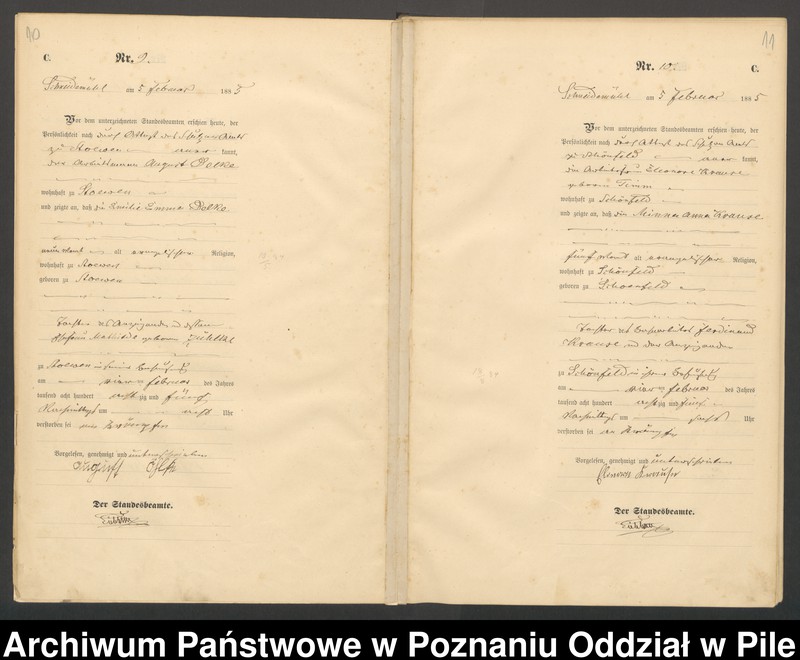 10
C.
Nr. 9.
Schneidemühl am 5 Februar 1885
Vor dem unterzeichneten Standesbeamten erschien heute, der
Persönlichkeit nach durch Attest des Schulzen Amts
zu Stoewen kannt,
der Arbeitsmann August Oelke
wohnhaft zu Stoewen
und zeigte an, daß die Emilie Emma Oelke
alt evangelischer Religion,
wohnhaft zu Stoewen
geboren zu Stoewen
Tochter des Anzeigenden und dessen
Ehefrau Mathilde geborene
zu Stoewen in seiner Behausung
am vierten Februar des Jahres
tausend acht hundert achtzig und fünf
Nachmittags um acht Uhr
verstorben sei an Krämpfen
Vorgelesen, genehmigt und unterschrieben
August Oelke
Der Standesbeamte.
11
Nr. 10.
C.
Schneidemühl am 5 Februar 1885
Vor dem unterzeichneten Standesbeamten erschien heute, der
Persönlichkeit nach durch Attest des Schulzen Amts
zu Schönfeld kannt,
die Arbeiterfrau Eleonore Krause
geborene Timm
wohnhaft zu Schönfeld
und zeigte an, daß die Minna Anna Krause
fünf Monat alt evangelischer Religion,
wohnhaft zu Schönfeld
geboren zu Schoenfeld
Tochter des Ferdinand
Krause und der Anzeigenden
zu Schönfeld in ihrer Behausung
am vierten Februar des Jahres
tausend acht hundert achtzig und fünf
Nachmittags um Uhr
verstorben sei an Krämpfen
Vorgelesen, genehmigt und unterschrieben
Der Standesbeamte.
Archiwum Państwowe w Poznaniu Oddział w Pile